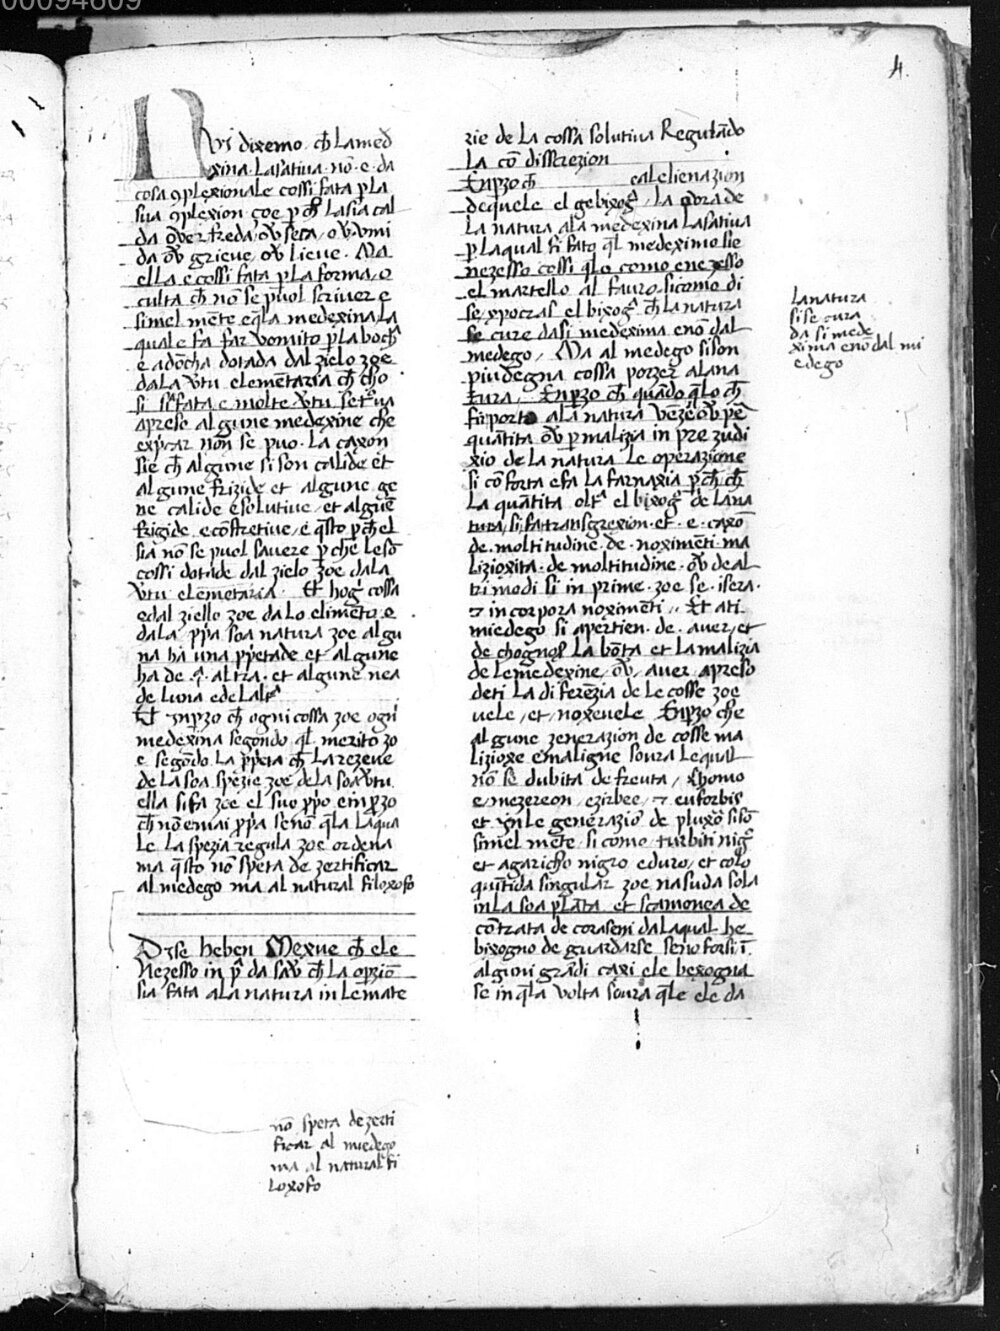 00094609
4
Nui dixemo ch̄ la med
exina lasativa nō e da
cosa 9plexionale cossi fata p̱ la
sua 9plexion zoe p̱ ch̄ la sia cal
da ov̄er freda ov̄ seca ov̄ umi
da ov̄ grieve ov̄ lieve. Ma
ella e cossi fata p̱ la forma o
culta ch̄ nō se puol scriver e
simel mēte eq̄la medexina la
quale fa far vomito p̱ la boch̄
e adōcha dotada dal zielo zoe
dala v̄tu elemētaria ch̄ cho
si si fata e molte v̄tu se trova
apreso algune medexine che
exp̱icar nōn se puo. La caxon
sie ch̄ algune si son calide et
algune frizide et algune ge
ne calide e solutive et alguē
frigide e cōstretive e q̄sto p̱ ch̄ el
sia nō se puol savere p̱ che le sō
cossi dotade dal zielo zoe dala
v̄tu elemētaria. Et hoḡ cossa
e dal ziello zoe da lo elimēto e
dala p̱p̱a soa natura zoe algu
na ha una p̱p̱etade et algune
ha de altra et algune nea
de luna e de laltra
Et Inp̱zo ch̄ ogni cossa zoe ogni
medexina segondo q̄l merito zo
e segōdo la p̱p̱eta ch̄ la rezeve
de la soa spezie zoe dela soa v̄tu
ella si fa zoe el suo p̱p̱o e inp̱zo
ch̄ nō e mai p̱p̱a senō q̄la la qua
le la spezia regula zoe ordena
ma q̄sto nō speta de zertificar
al miedego ma al natural filoxofo
Dise heben Mexue ch̄ el e
Nezesso in p̱ da sav̄ ch̄ la op̱ziō
sia fata ala natura in le mate
nō speta de zerti
ficar al miedego
ma al natural fi
loxofo
rie de la cossa solutiva Regulādo
la cō disscrezion
Enp̱zo ch̄ cal elienazion
de quele el ge bixoḡ la ovra de
la natura ala medexina lasativa
p̱ la qual fi fato q̄l medeximo sie
nezesso cossi q̄lo como e nezesso
el martello al favro sicome di
se ypocras el bixoḡ ch̄ la natura
se cure da si medexima e nō dal
medego. Ma al medego si son
piu degna cossa porzer ala na
tura. Enp̱zo ch̄ quādo q̄lo ch̄
fi porto ala natura vēze ov̄ p̱
quātita ov̄ p̱ malizia in prezudi
xio de la natura le operazione
si cōforta e fa la farmaxia p̱ ch̄
la quātita oltr̄ el bixoḡ de la na
tura, si fa transgrexion et e caxō
de moltitudine de noximēti ma
lizioxita de moltitudine ov̄ de al
tri modi si in prime zoe se isera
⁊ in corpora noximēti. Et a ti
miedego si apertien de aver et
de chognos̄ la bōta et la malizia
de le medexine ov̄ aver apreso
de ti la diferēzia de le cosse zoe
uele et noxevele Enp̱zo che
algune zenerazion de cosse ma
lizioxe e maligne sovra le qual
nō se dubita de freuta
e mezereon ezirbee ⁊ euforbis
et in le generazio de pluxō si sō
simel mēte si como turbiti nig̃
et agaricho nigro e duro et colo
quītida singular zoe nasuda sola
in la soa plāta et scamonea de
cōtrata de coraseni dala qual he
bixogno de guardarse senō forsi ī
alguni grādi caxi ele bexogna
se in q̄la volta sovra q̄le ele da
la natura
si se cura
da si mede
xima e nō dal mi
edego